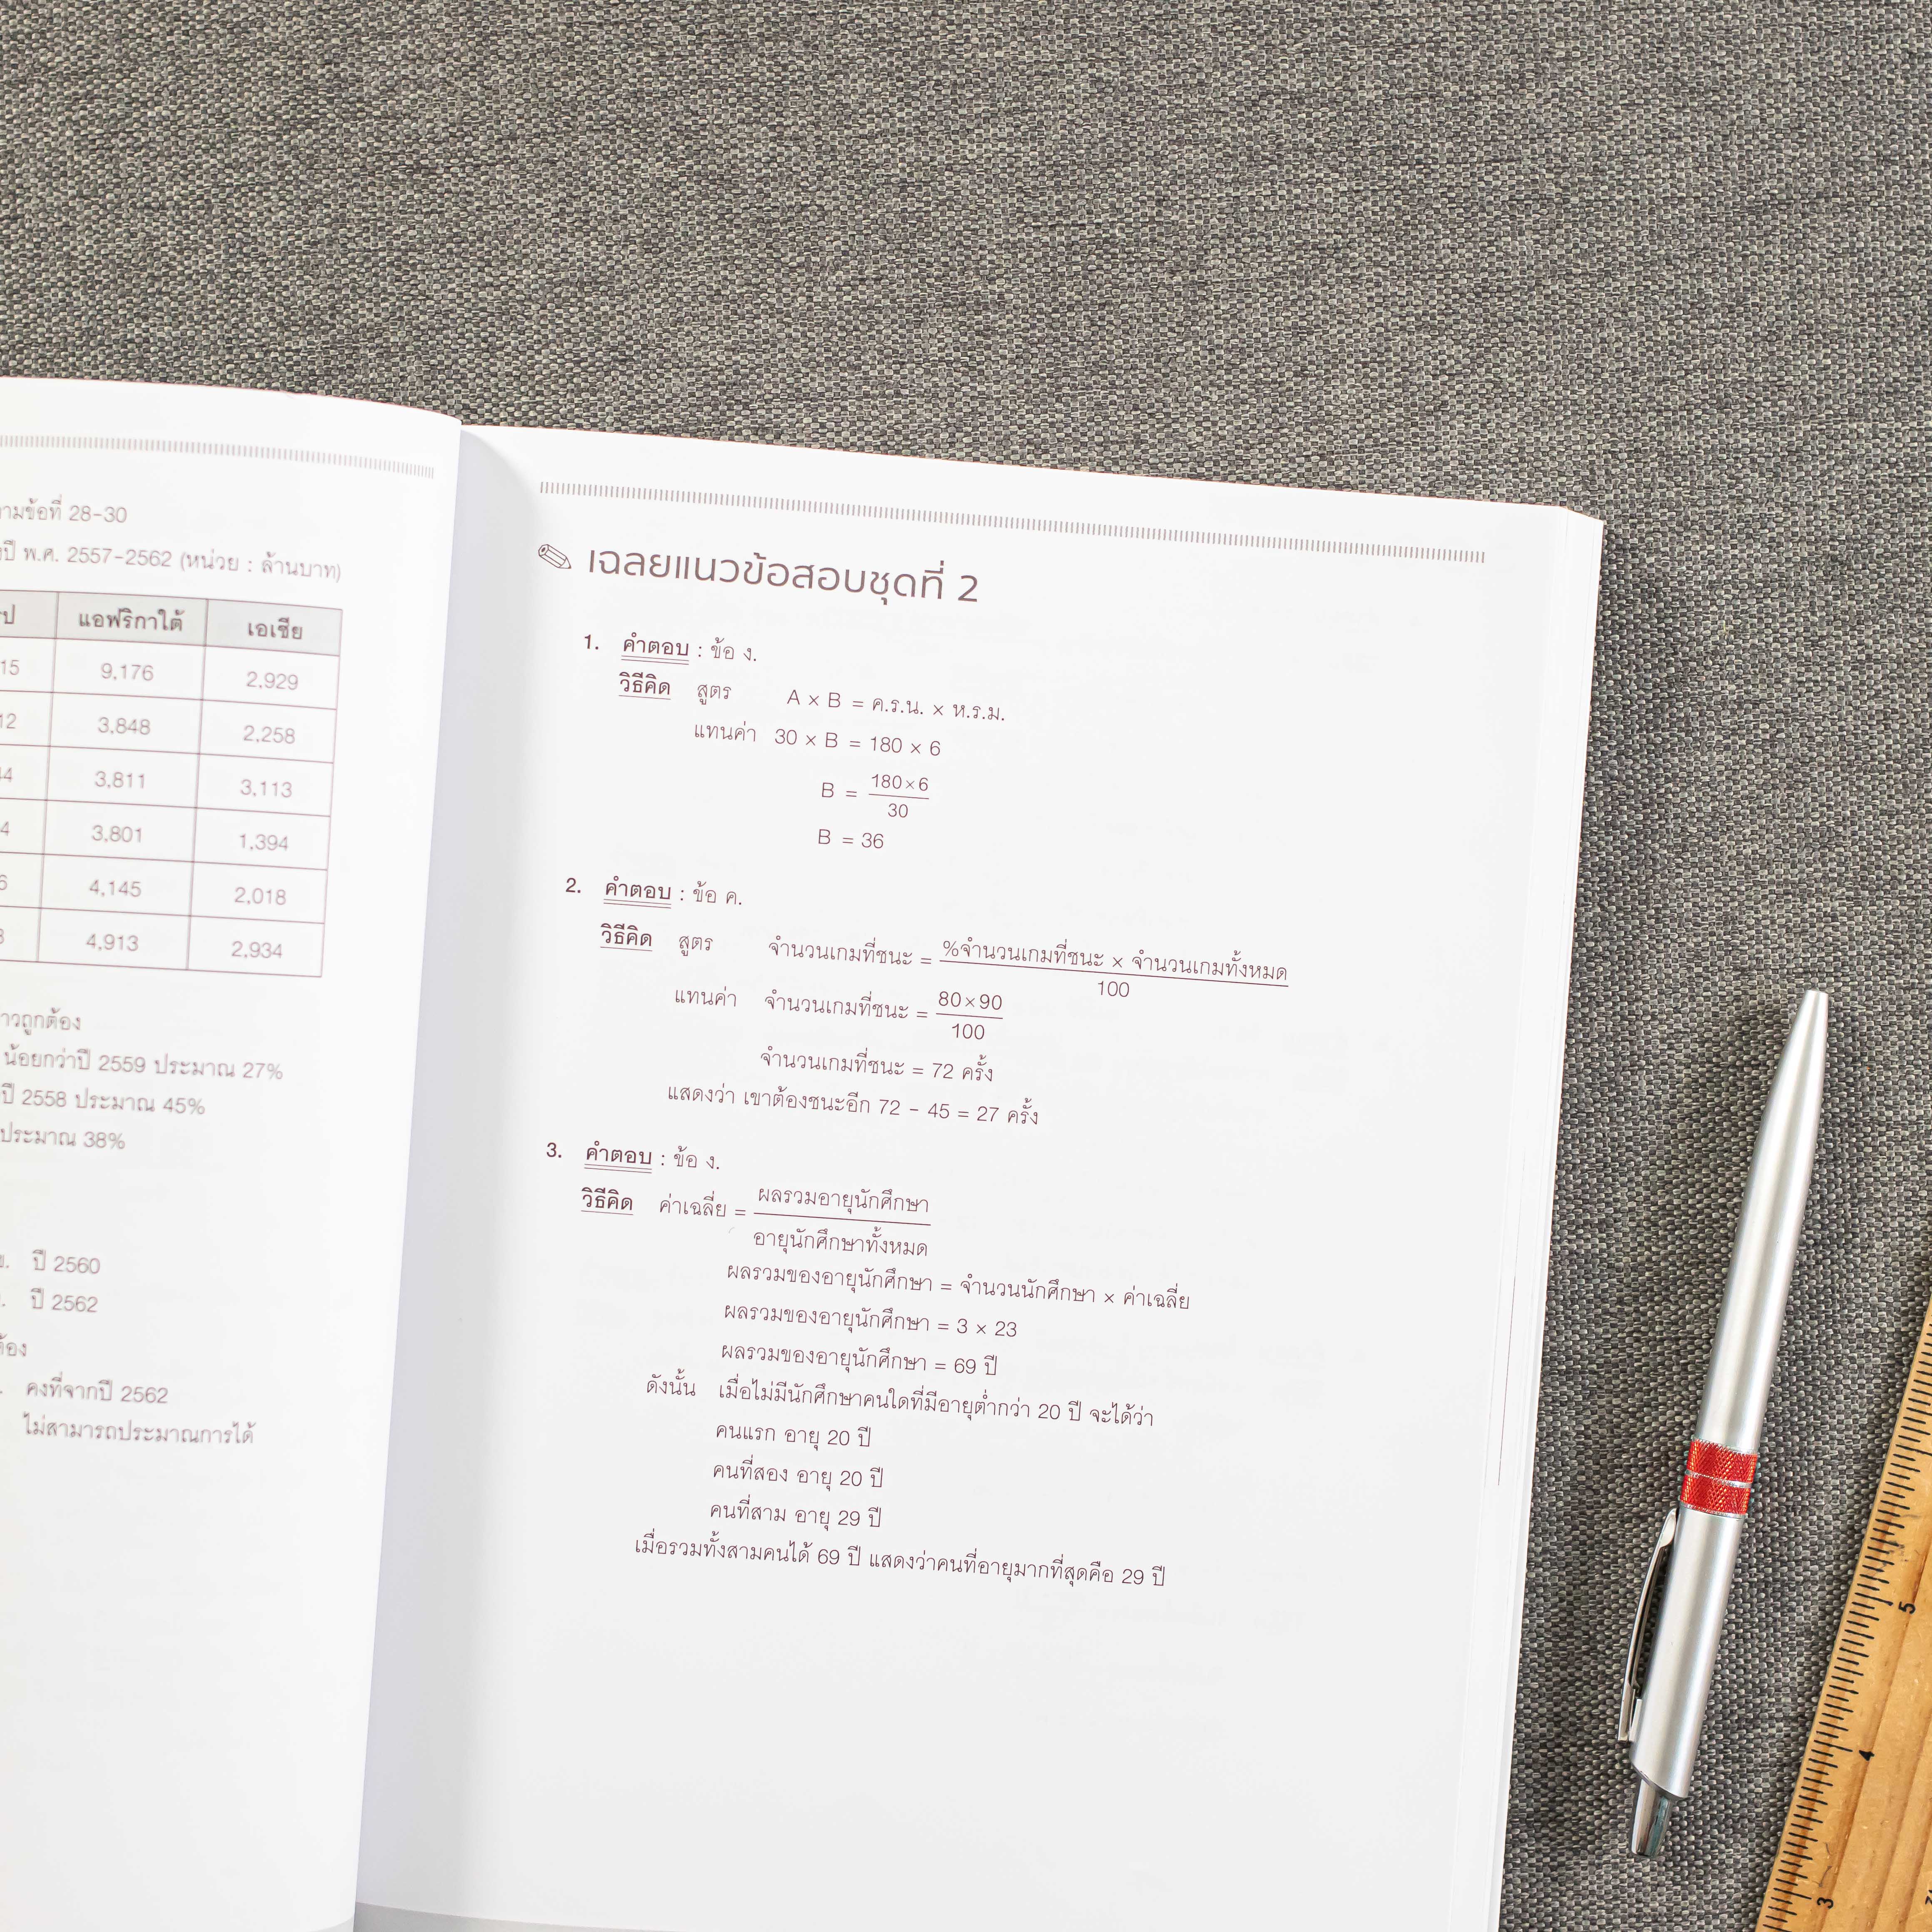 ามข้อที่ 28-30
ปี พ.ศ. 2557-2562 (หน่วย : ล้านบาท)
ป แอฟริกาใต้ เอเชีย
15 9,176 2,929
12 3,848 2,258
4 3,811 3,113
4 3,801 1,394
6 4,145 2,018
4,913 2,934
าวถูกต้อง
น้อยกว่าปี 2559 ประมาณ 27%
ปี 2558 ประมาณ 45%
ประมาณ 38%
ปี 2560
ปี 2562
ต้อง
คงที่จากปี 2562
ไม่สามารถประมาณการได้
เฉลยแนวข้อสอบชุดที่ 2
1. คำตอบ : ข้อ ง.
วิธีคิด สูตร A × B = ค.ร.น. × ห.ร.ม.
แทนค่า 30 × B = 180 × 6
B = 180×6
30
B = 36
2. คำตอบ : ข้อ ค.
วิธีคิด สูตร จำนวนเกมที่ชนะ = %จำนวนเกมที่ชนะ × จำนวนเกมทั้งหมด
100
แทนค่า จำนวนเกมที่ชนะ = 80×90
100
จำนวนเกมที่ชนะ = 72 ครั้ง
แสดงว่า เขาต้องชนะอีก 72 - 45 = 27 ครั้ง
3. คำตอบ : ข้อ ง.
วิธีคิด ค่าเฉลี่ย = ผลรวมอายุนักศึกษา
อายุนักศึกษาทั้งหมด
ผลรวมของอายุนักศึกษา = จำนวนนักศึกษา × ค่าเฉลี่ย
ผลรวมของอายุนักศึกษา = 3 × 23
ผลรวมของอายุนักศึกษา = 69 ปี
ดังนั้น เมื่อไม่มีนักศึกษาคนใดที่มีอายุต่ำกว่า 20 ปี จะได้ว่า
คนแรก อายุ 20 ปี
คนที่สอง อายุ 20 ปี
คนที่สาม อายุ 29 ปี
เมื่อรวมทั้งสามคนได้ 69 ปี แสดงว่าคนที่อายุมากที่สุดคือ 29 ปี
5
4
3